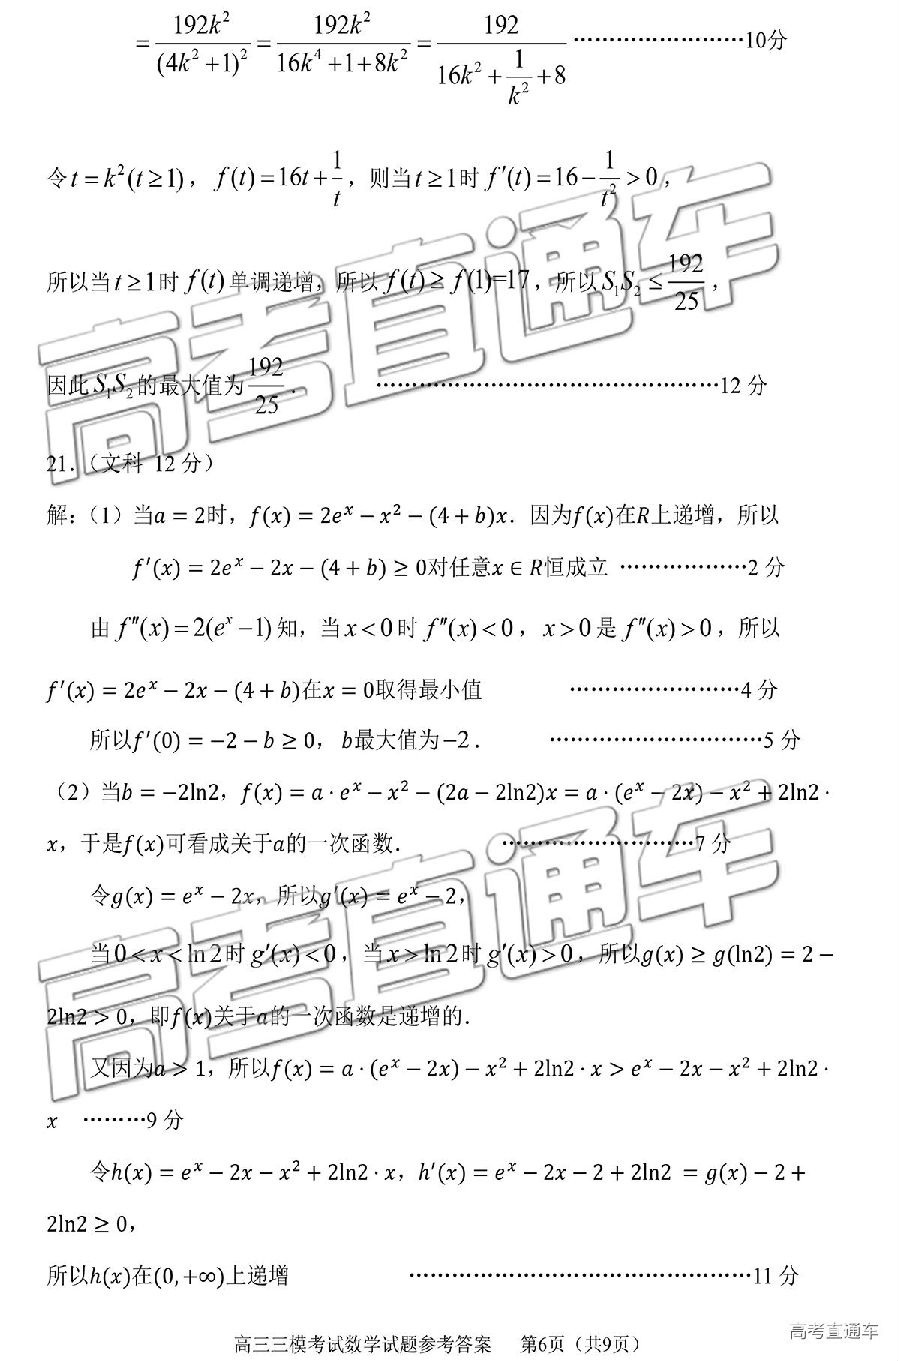 = 192k²/(4k²+1)² = 192k²/(16k⁴+1+8k²) = 192/(16k²+1/k²+8) ……………………10分
令t=k²(t≥1)，f(t)=16t+1/t，则当t≥1时f′(t)=16−1/t²>0，
所以当t≥1时f(t)单调递增，所以f(t)≥f(1)=17，所以S₁S₂≤192/25，
因此S₁S₂的最大值为192/25． …………………………………………12分
21．（文科 12分）
解：（1）当a = 2时，f(x) = 2eˣ − x² − (4 + b)x．因为f(x)在R上递增，所以
f′(x) = 2eˣ − 2x − (4 + b) ≥ 0对任意x ∈ R恒成立 ………………2分
由f″(x)=2(eˣ−1)知，当x<0时f″(x)<0，x>0是f″(x)>0，所以
f′(x) = 2eˣ − 2x − (4 + b)在x = 0取得最小值 ……………………4分
所以f′(0) = −2 − b ≥ 0， b最大值为−2． …………………………5分
（2）当b = −2ln2，f(x) = a · eˣ − x² − (2a − 2ln2)x = a · (eˣ − 2x) − x² + 2ln2 ·
x，于是f(x)可看成关于a的一次函数． ………………………7分
令g(x) = eˣ − 2x，所以g′(x) = eˣ − 2，
当0<x<ln2时g′(x)<0，当x>ln2时g′(x)>0，所以g(x) ≥ g(ln2) = 2 −
2ln2 > 0，即f(x)关于a的一次函数是递增的．
又因为a > 1，所以f(x) = a · (eˣ − 2x) − x² + 2ln2 · x > eˣ − 2x − x² + 2ln2 ·
x ………9分
令h(x) = eˣ − 2x − x² + 2ln2 · x，h′(x) = eˣ − 2x − 2 + 2ln2 = g(x) − 2 +
2ln2 ≥ 0，
所以h(x)在(0, +∞)上递增 …………………………………………11分
高三三模考试数学试题参考答案 第6页（共9页）
高考直通车
高考直通车
高考直通车